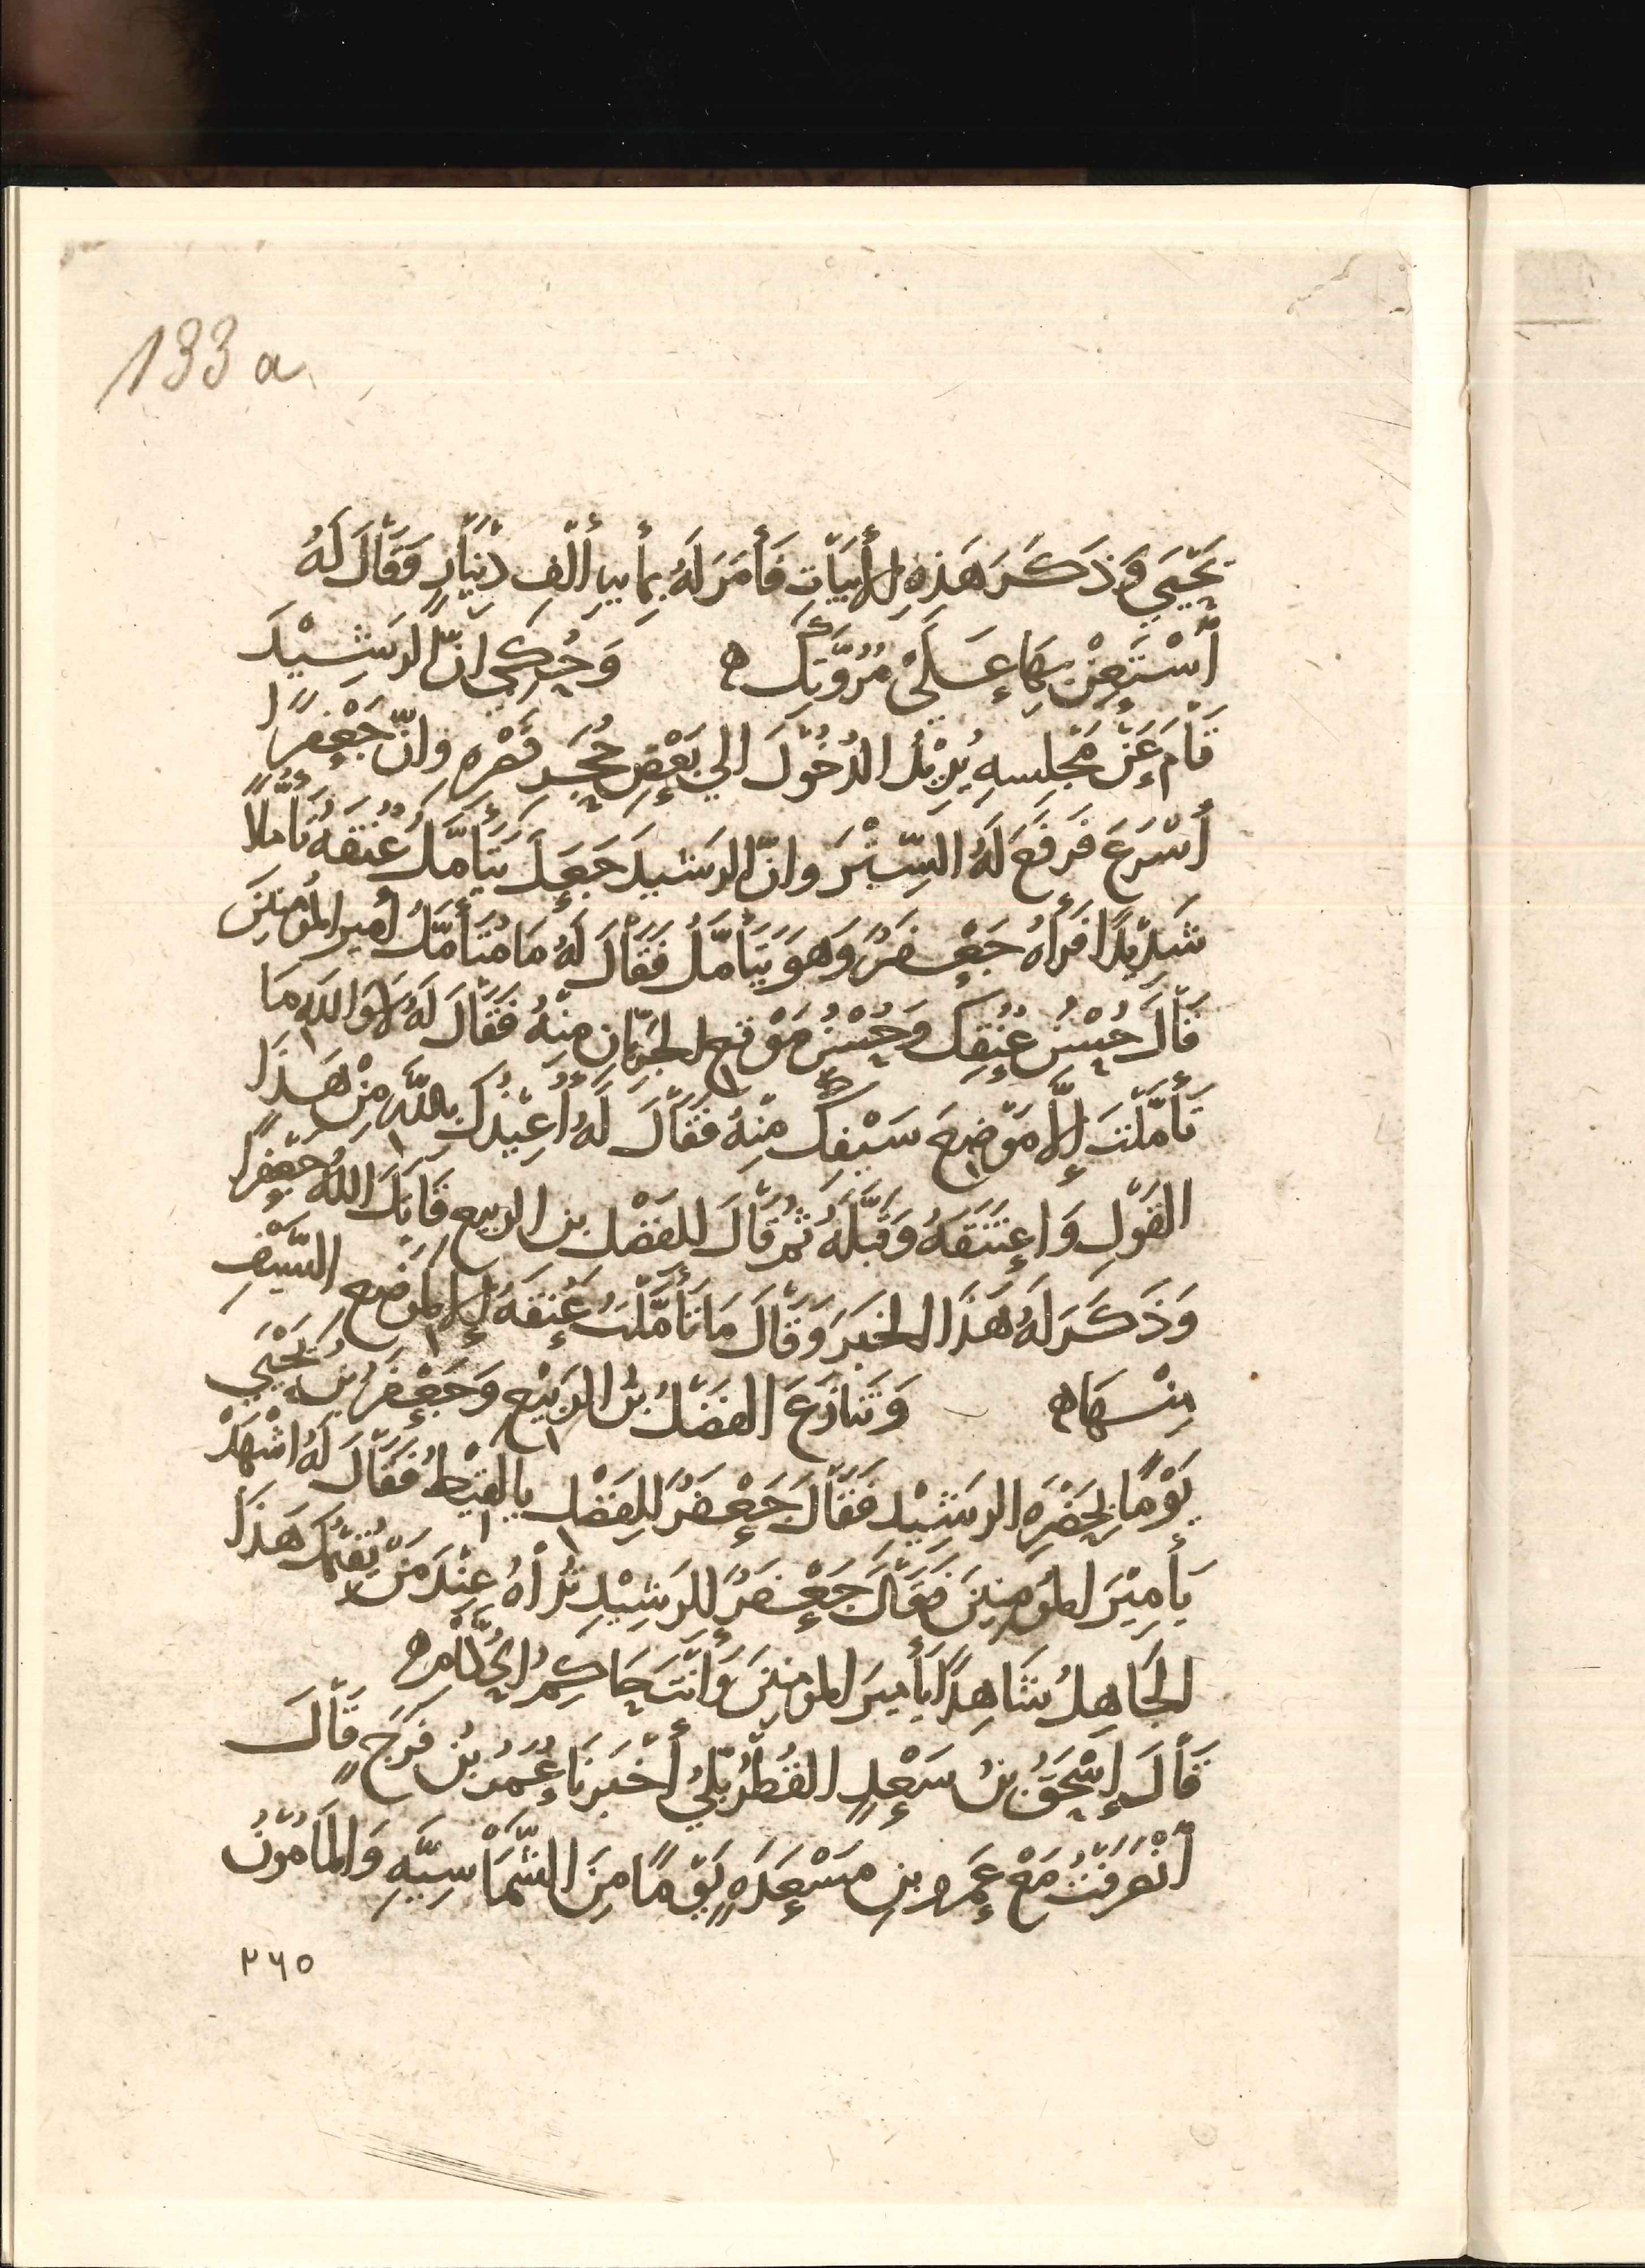 133 a
يَحْيَي وَذَكَرَ هَذِهِ الأَبْيَاتِ فَأَمَرَ لَهُ بمأيه أَلْفِ دِيْنَارٍ وَقَالَ لَهُ
اسْتَعِنْ بِهَا عَلَىْ مُرُوَّتِكَ ه وَحُكِي انّ الرَشِيْدَ
قَامَ عَنْ مَجْلِسِهِ يُرِيْدُ الدُخُوْلَ الي بَعْضِ حُجَرِ قَصْرِهِ وانّ جَعْفَرًا
أَسْرَعَ فَرَفَعَ لَهُ السِّتْرَ وانّ الرَشيدَ جَعَلَ يَتَأَمَّلُ عُنُقَهُ تَأَمُّلاً
شَدِيْدًا فَرَأَهُ جَعْفَرٌ وَهوَ يَتَأَمَّلُ فَقَالَ لَهُ مَا مُتَأَمَّلُ أمير المؤْمِنِيْنَ
قَالَ حُسْنُ عُنُقِكَ وَحُسْنُ مَوْقع الجُرُبّان مِنْهُ فَقَالَ لَهُ لَا وَاللهِ مَا
تَأَمَّلْتَ إِلَّا مَوْضِعَ سَيْفِكَ مِنْهُ فَقَالَ لَهُ أُعِيْذُكَ بِاللّهِ مِنْ هَذَا
القَوْلِ وَاعتَنَقَهُ وَقَبَّلَهُ ثُمّ قَالَ لِلفَضْلِ بن الربيع قَاتَلَ اللهُ جَعْفَرًا
وَذَكَرَ لَهُ هَذَا الخبَرَ وَقَالَ مَا تَأَمَّلْتُ عُنُقَهُ إِلا لموضع السَّيْفِ
مِنْهَا ه وَتَنَازَعَ الفَضْلُ بنُ الرَبِيْعِ وَجَعْفَرُ بْنُ يَحْيَي
يَوْمًا بِحَضْرَهِ الرشِيْدِ فَقَالَ جَعْفَرٌ لِلفَضْلِ يا لقيط فَقَالَ لَهُ اشْهَدْ
يَأمِيْرَ المؤمِنِينَ فَقَالَ جَعْفَرٌ لِلرشِيْدِ تُرَأهُ عِنْدَ مَنْ يُقِيْمُكَ هَذَا
الجَاهِلُ شَاهِدًا يَأَميرَ المؤمنِيْنَ وَأَنْتَ حَاكِمُ الحُكَّامِ ه
قَالَ إِسْحَقُ بنُ سَعْدٍ القُطْرُبُّلِي أَخْبَرَنَا عُمَرُ بْنُ فَرَجٍ قَالَ
انْصَرَفْتُ مَعَ عَمرو بنِ مَسْعَدَهٍ يَوْمًا مِنَ الشَّمَاْسِيَّهِ وَالمَأمُوْنُ
٢٦٥